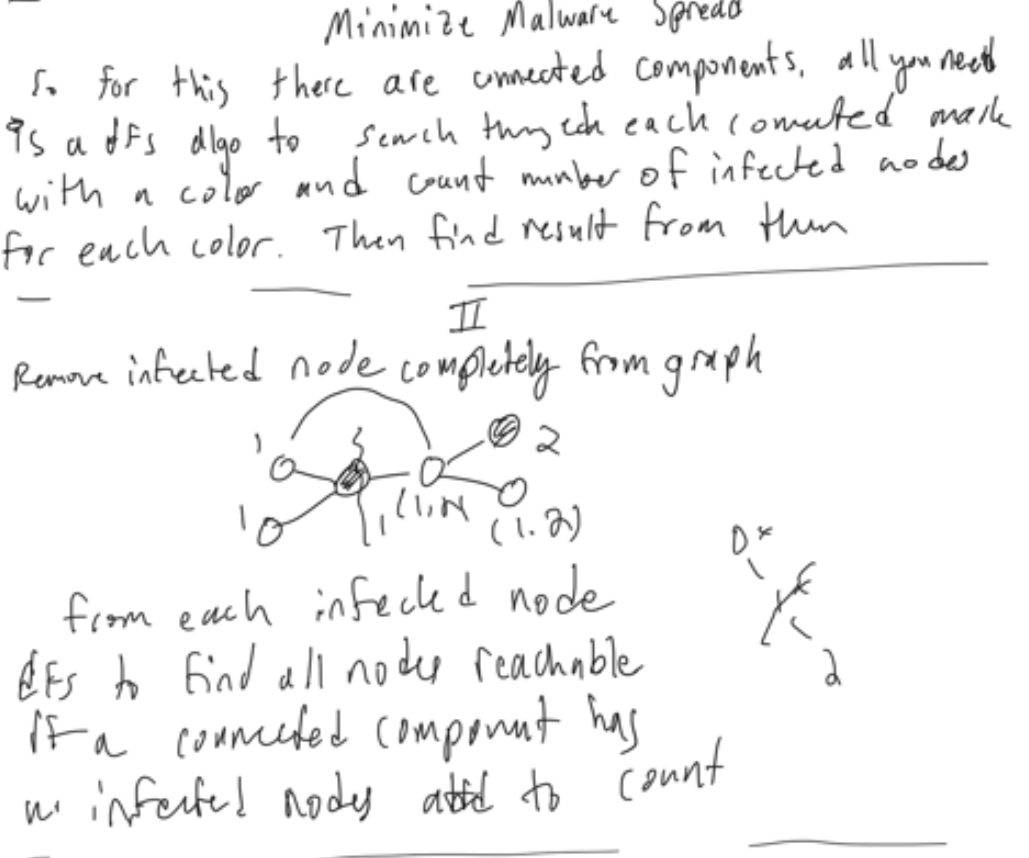 Minimize Malware Spread
So for this there are connected components, all you need
is a dfs algo to search through each connected mark
with a color and count number of infected nodes
for each color. Then find result from then
II
Remove infected node completely from graph
1
2
1
1
(1,2)
0 x
from each infected node
dfs to find all nodes reachable
2
If a connected component has
infected nodes add to count